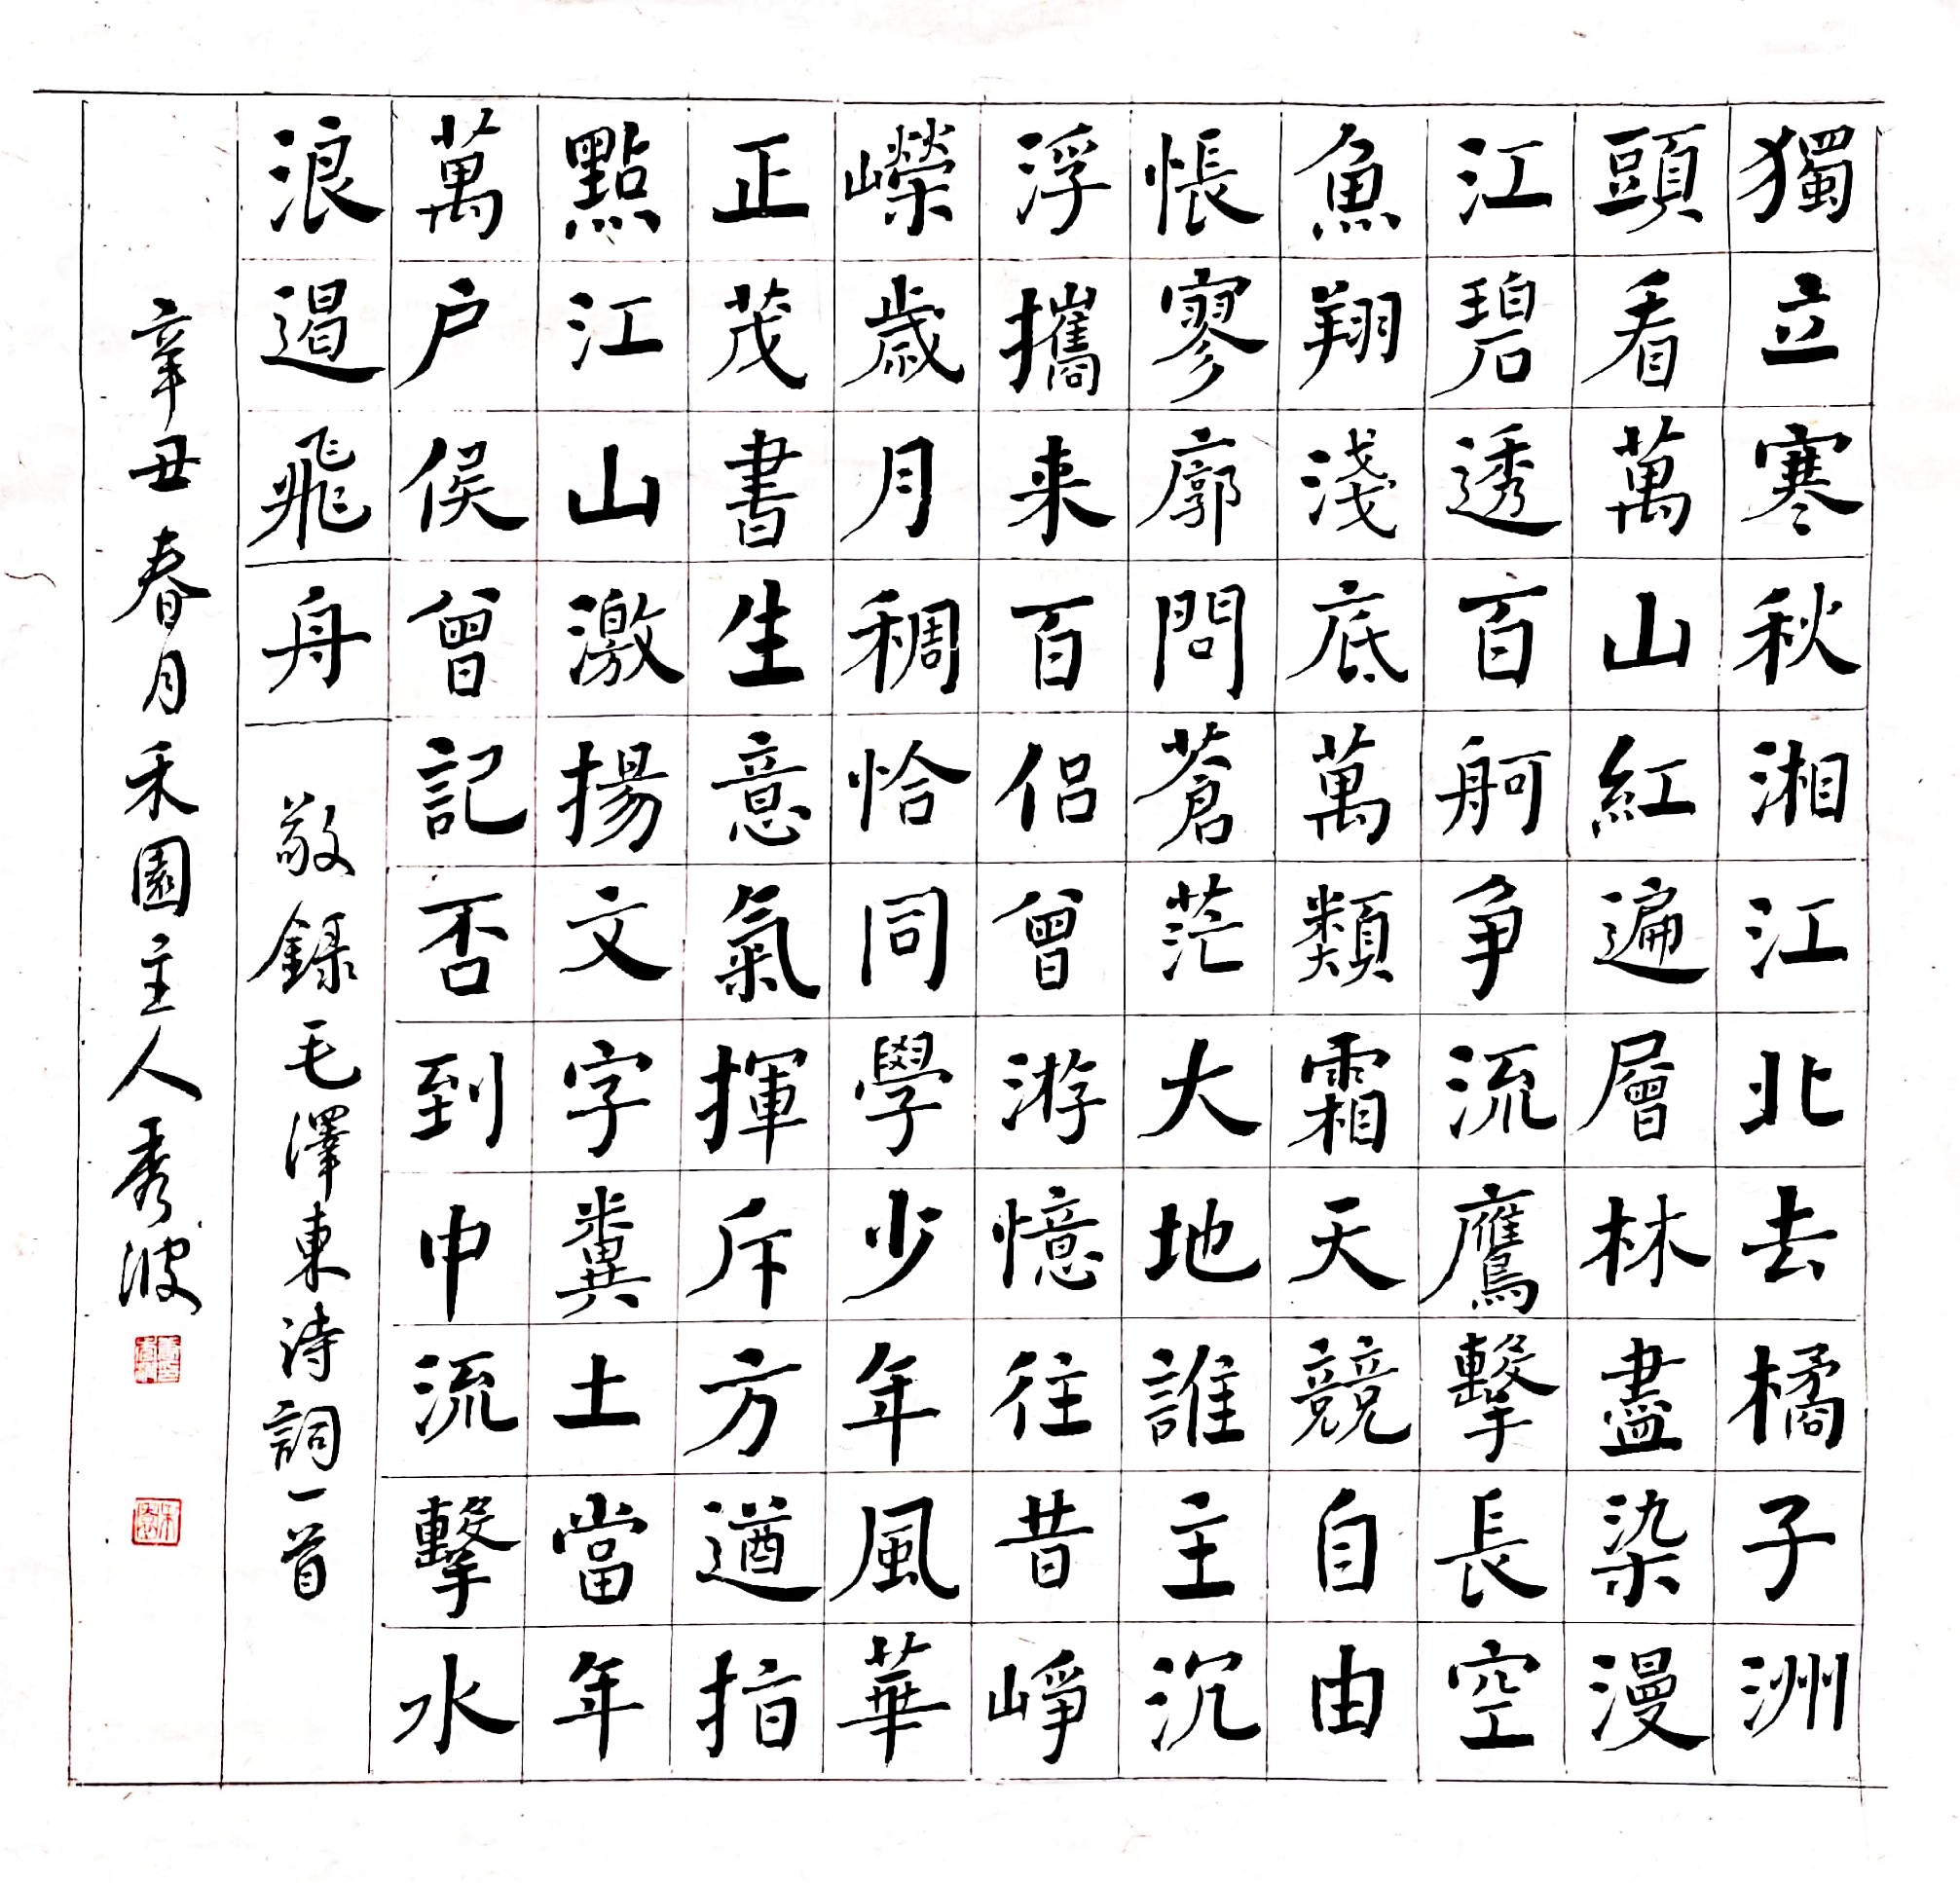 獨立寒秋湘江北去橘子洲
頭看萬山紅遍層林盡染漫
江碧透百舸争流鷹擊長空
魚翔淺底萬類霜天競自由
悵寥廓問蒼茫大地誰主沉
浮攜来百侣曾游憶往昔崢
嶸歲月稠恰同學少年風華
正茂書生意氣揮斥方遒指
點江山激揚文字糞土當年
萬户侯曾記否到中流擊水
浪遏飛舟 敬錄毛澤東詩詞一首
辛丑春月禾園主人秀波